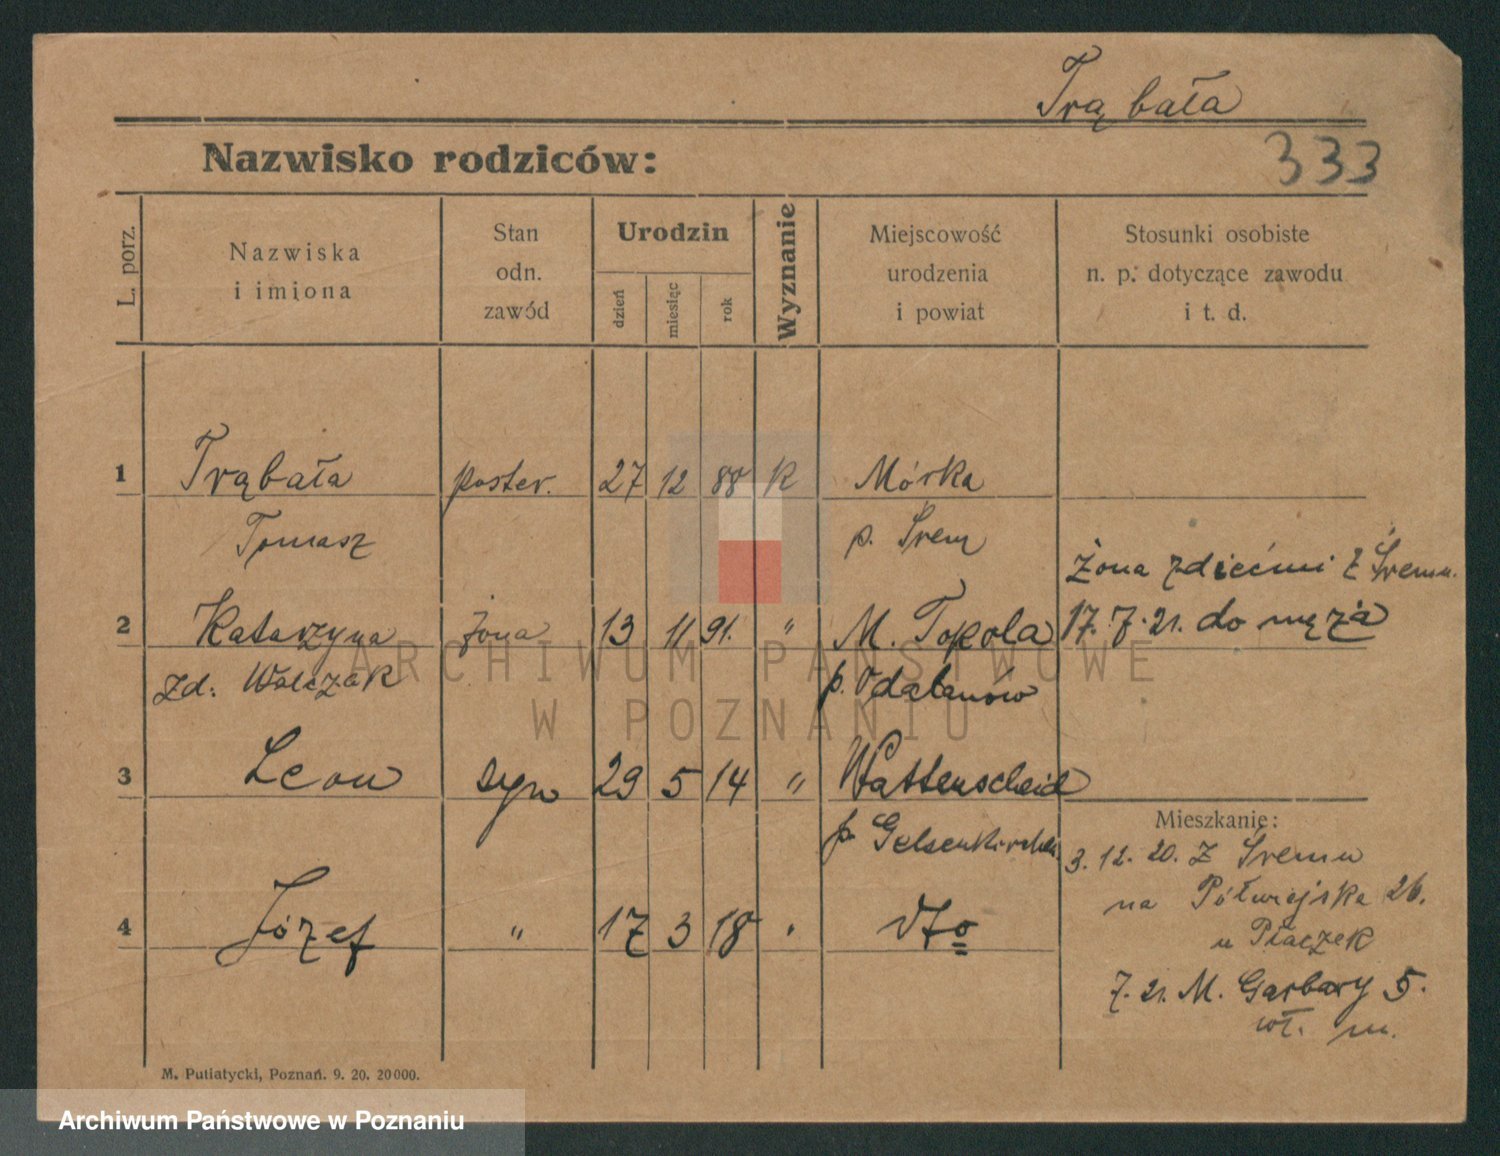 Trąbała
Nazwisko rodziców:
333
L. porz.
Nazwiska
i imiona
Stan
odn.
zawód
Urodzin
dzień
miesiąc
rok
Wyznanie
Miejscowość
urodzenia
i powiat
Stosunki osobiste
n. p. dotyczące zawodu
i t. d.
1 Trąbała poster. 27 12 88 K Mórka
Tomasz p. Śrem
żona zdiećmi z Śremu.
2 Katarzyna żona 13 11 91. " M. Topola 17. 7. 21. do męża
zd. Walczak p. Odalanów
3 Leon syn 29 5 14 " Wattenscheid
Mieszkanie:
p. Gelsenkirchen
3. 12. 20. Z Śremu
na Półwiejska 26.
4 Józef " 17 3 18 dto
u Płaczek
7. 21. M. Garbary 5.
wł. m.
M. Putiatycki, Poznań. 9. 20. 20000.
ARCHIWUM PAŃSTWOWE
W POZNANIU
Archiwum Państwowe w Poznaniu